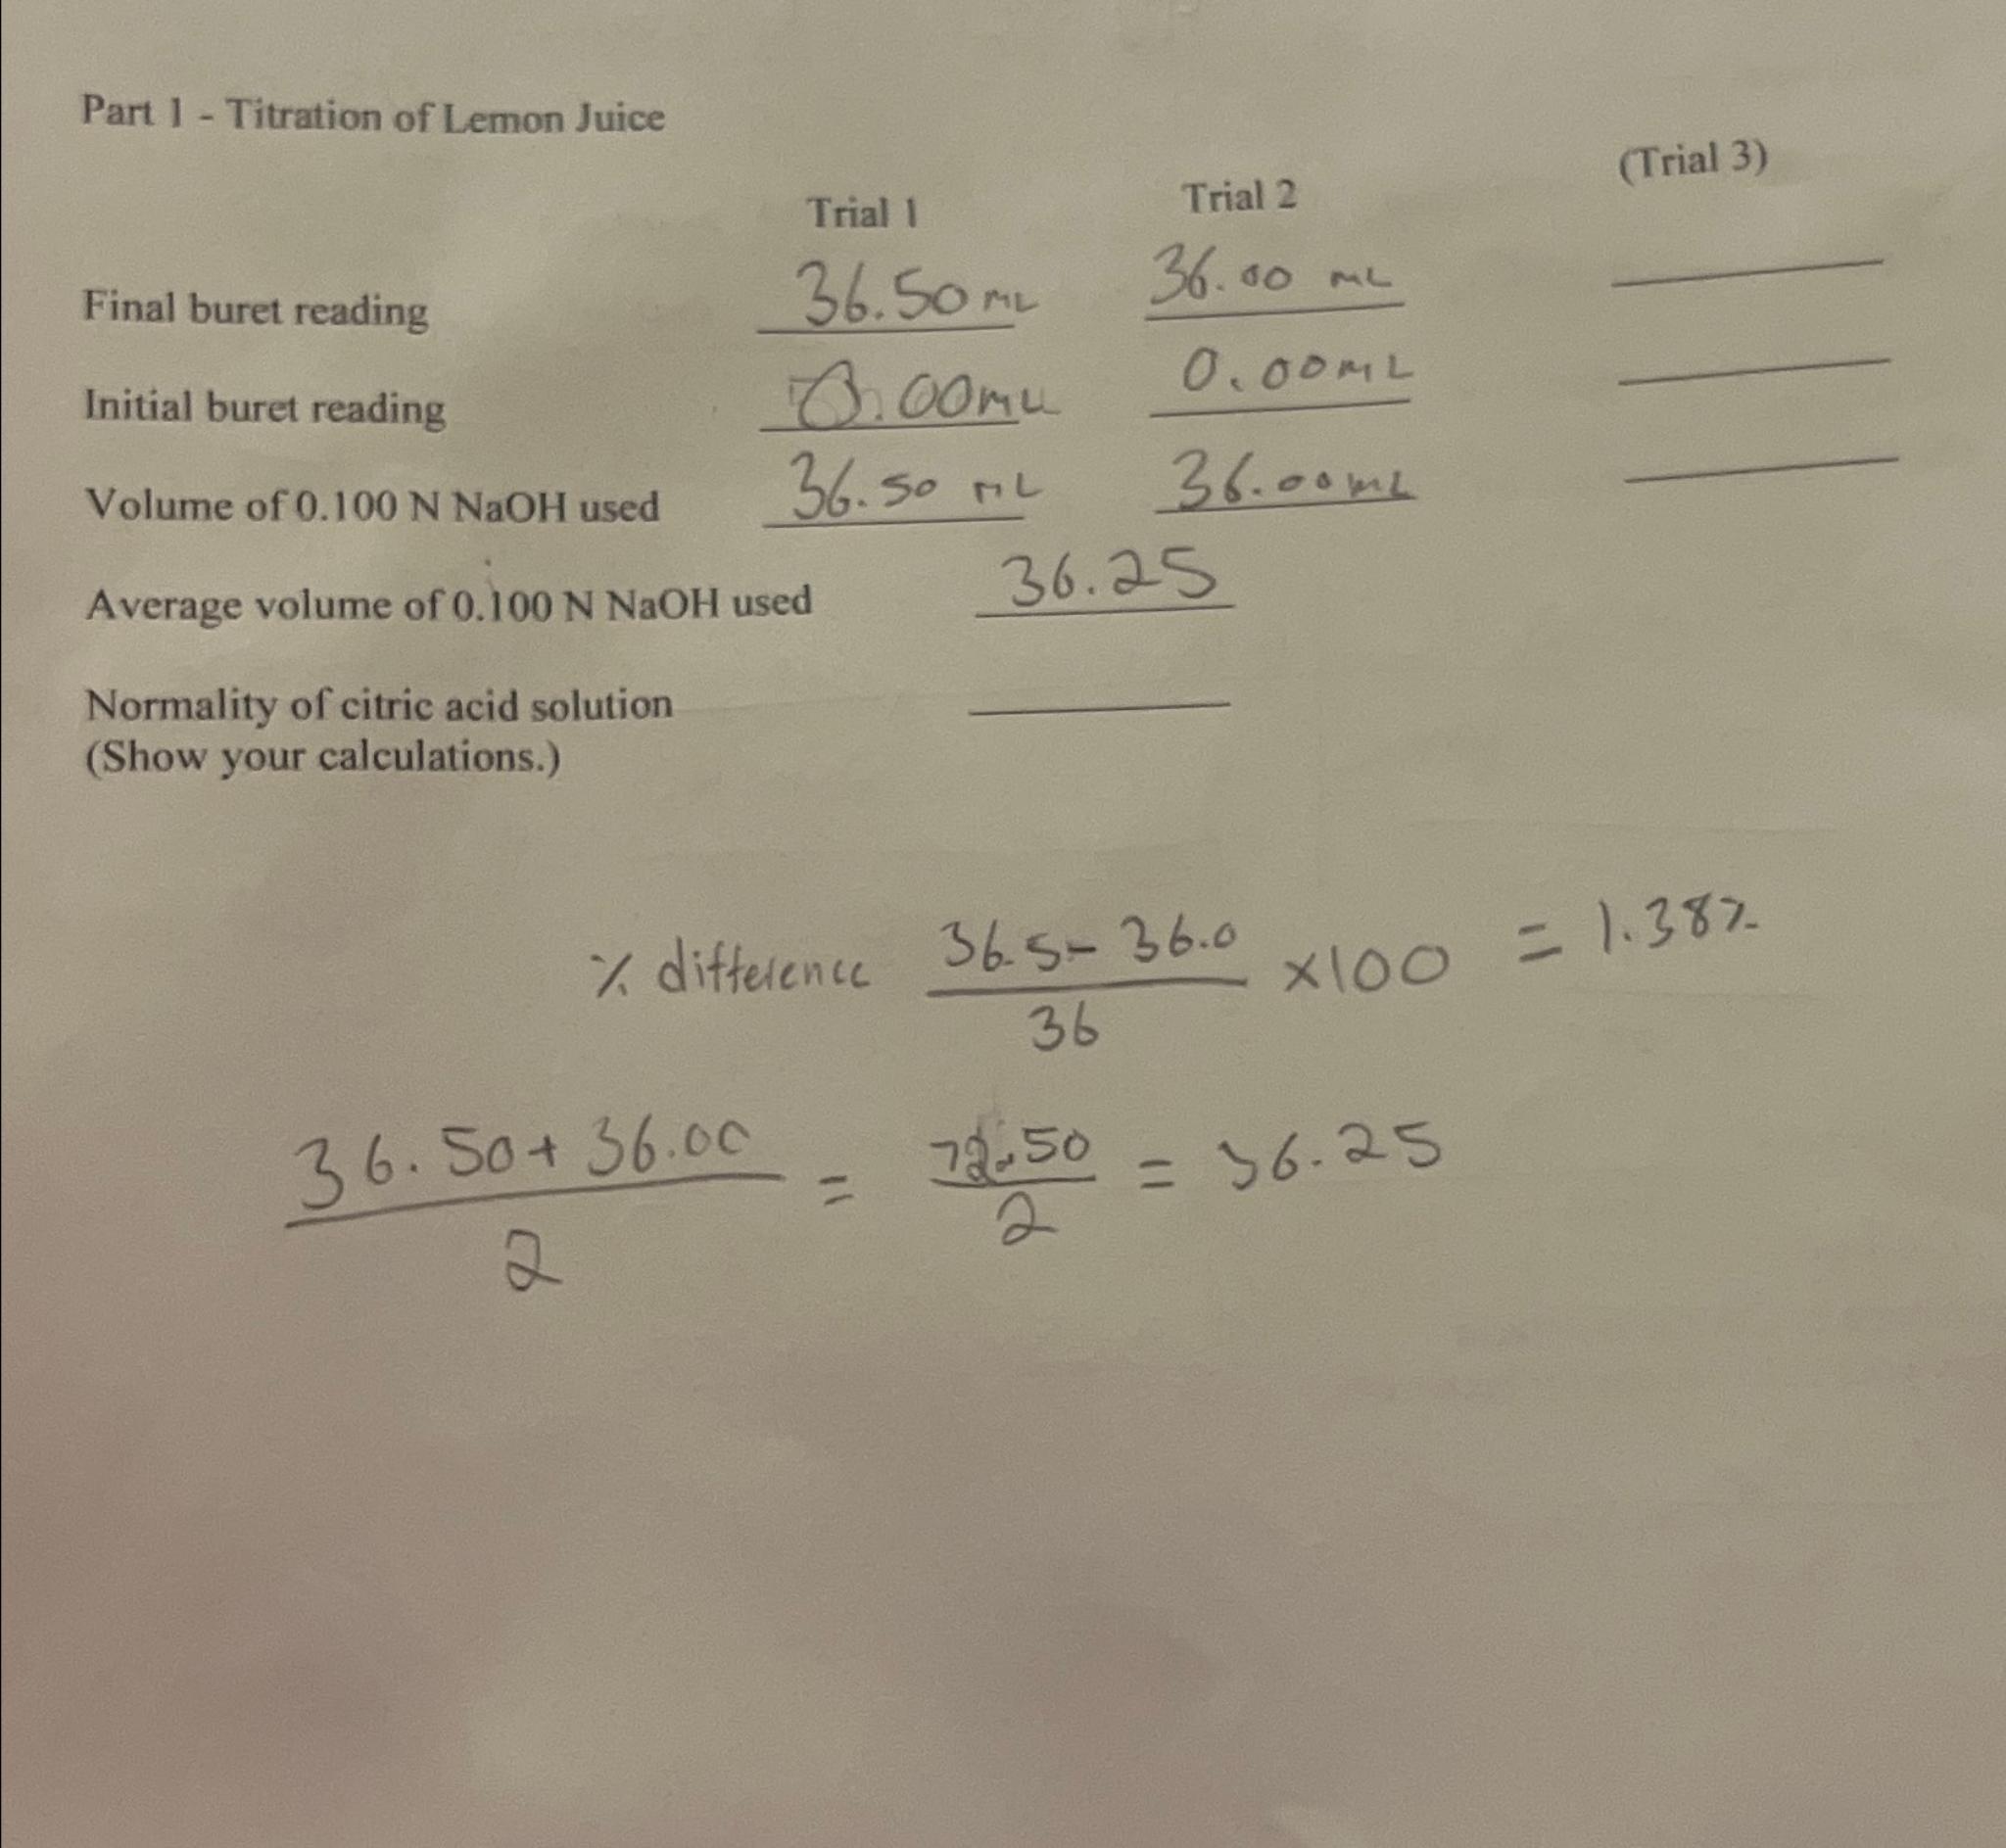 Part 1 - Titration of Lemon Juice
Trial 1 Trial 2 (Trial 3)
Final buret reading 36.50 mL 36.00 mL
Initial buret reading 0.00mL 0.00mL
Volume of 0.100 N NaOH used 36.50 mL 36.00mL
Average volume of 0.100 N NaOH used 36.25
Normality of citric acid solution
(Show your calculations.)
% difference 36.5- 36.0 / 36 x100 = 1.38%
36.50+ 36.00 / 2 = 72.50 / 2 = 36.25